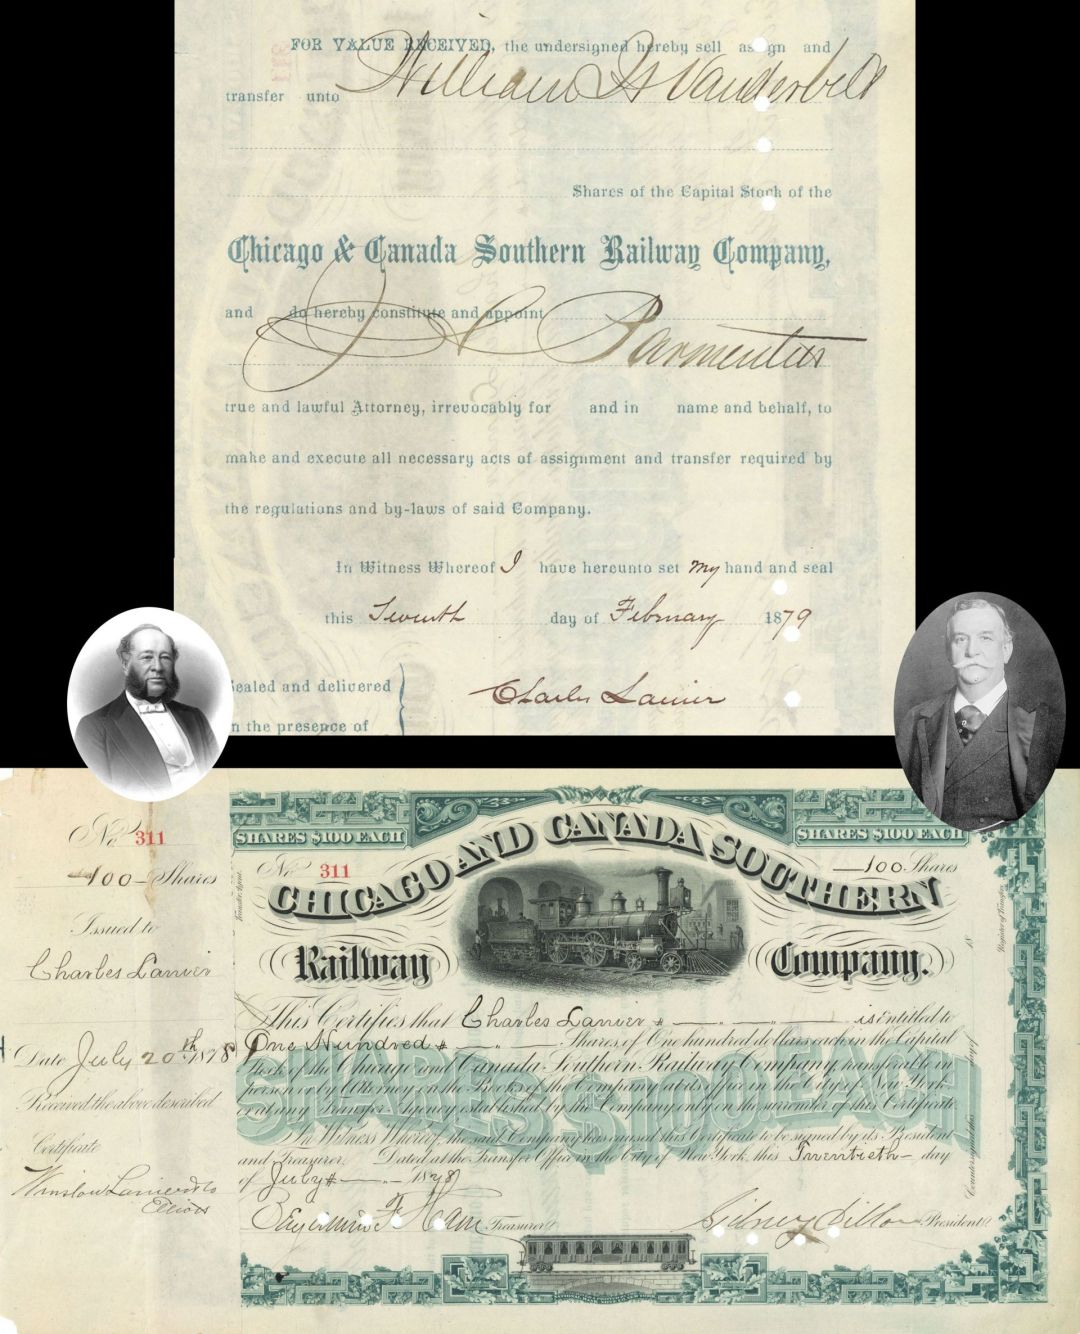 FOR VALUE RECEIVED, the undersigned hereby sell assign and
transfer unto William H Vanderbilt
Shares of the Capital Stock of the
Chicago & Canada Southern Railway Company,
and do hereby constitute and appoint
J C Parmenter
true and lawful Attorney, irrevocably for and in name and behalf, to
make and execute all necessary acts of assignment and transfer required by
the regulations and by-laws of said Company.
In Witness Whereof I have hereunto set my hand and seal
this Seventh day of February 1879
Sealed and delivered
in the presence of
Charles Lanier
No 311
100 Shares
Issued to
Charles Lanier
Date July 20th 1878
Received the above described
Certificate
Winslow Lanier & Co
SHARES $100 EACH
SHARES $100 EACH
No 311
100 Shares
CHICAGO AND CANADA SOUTHERN
Railway Company.
This Certifies that Charles Lanier is entitled to
One Hundred Shares of One hundred dollars each in the Capital
Stock of the Chicago and Canada Southern Railway Company, transferable in
person or by Attorney on the Books of the Company at its office in the City of New York
or at any Transfer Agency established by the Company only on the surrender of this Certificate.
In Witness Whereof, the said Company has caused this Certificate to be signed by its President
and Treasurer. Dated at the Transfer Office in the City of New York, this Twentieth day
of July 1878
Benjamin F Ham Treasurer
Sidney Dillon President
SHARES $100 EACH
Transfer Agent
Countersigned this day of 18
Register of Transfers